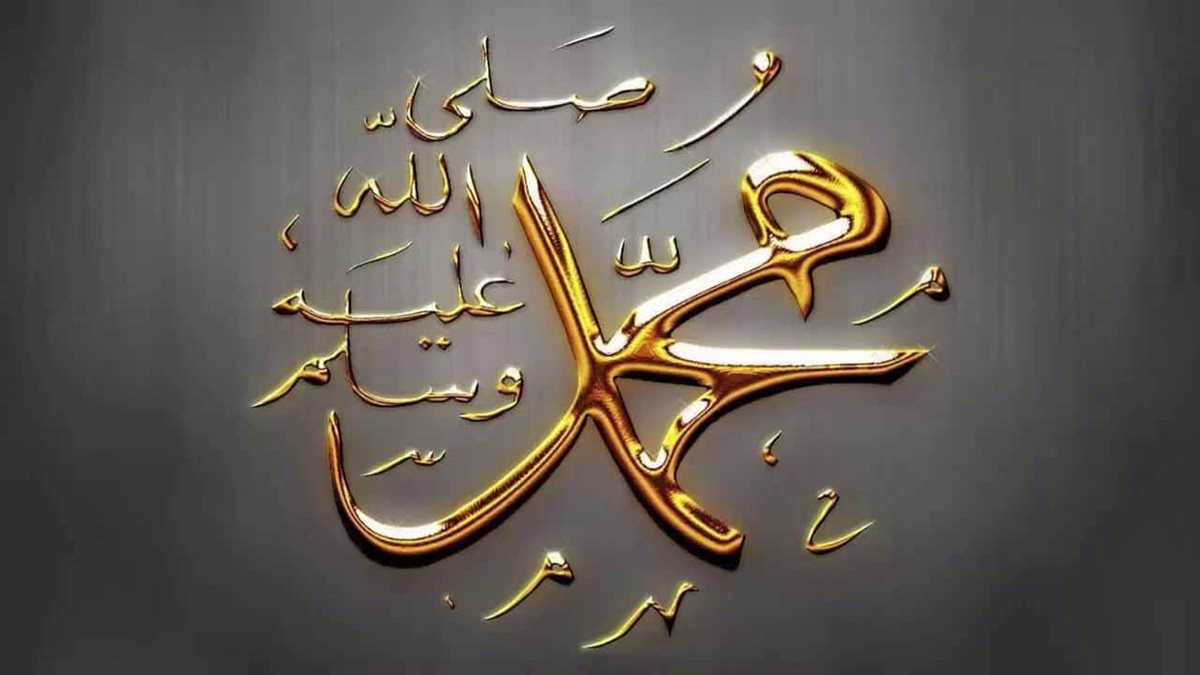 مُحَمَّد
صَلَّى
اللّٰه
عَلَيْهِ
وَسَلَّم